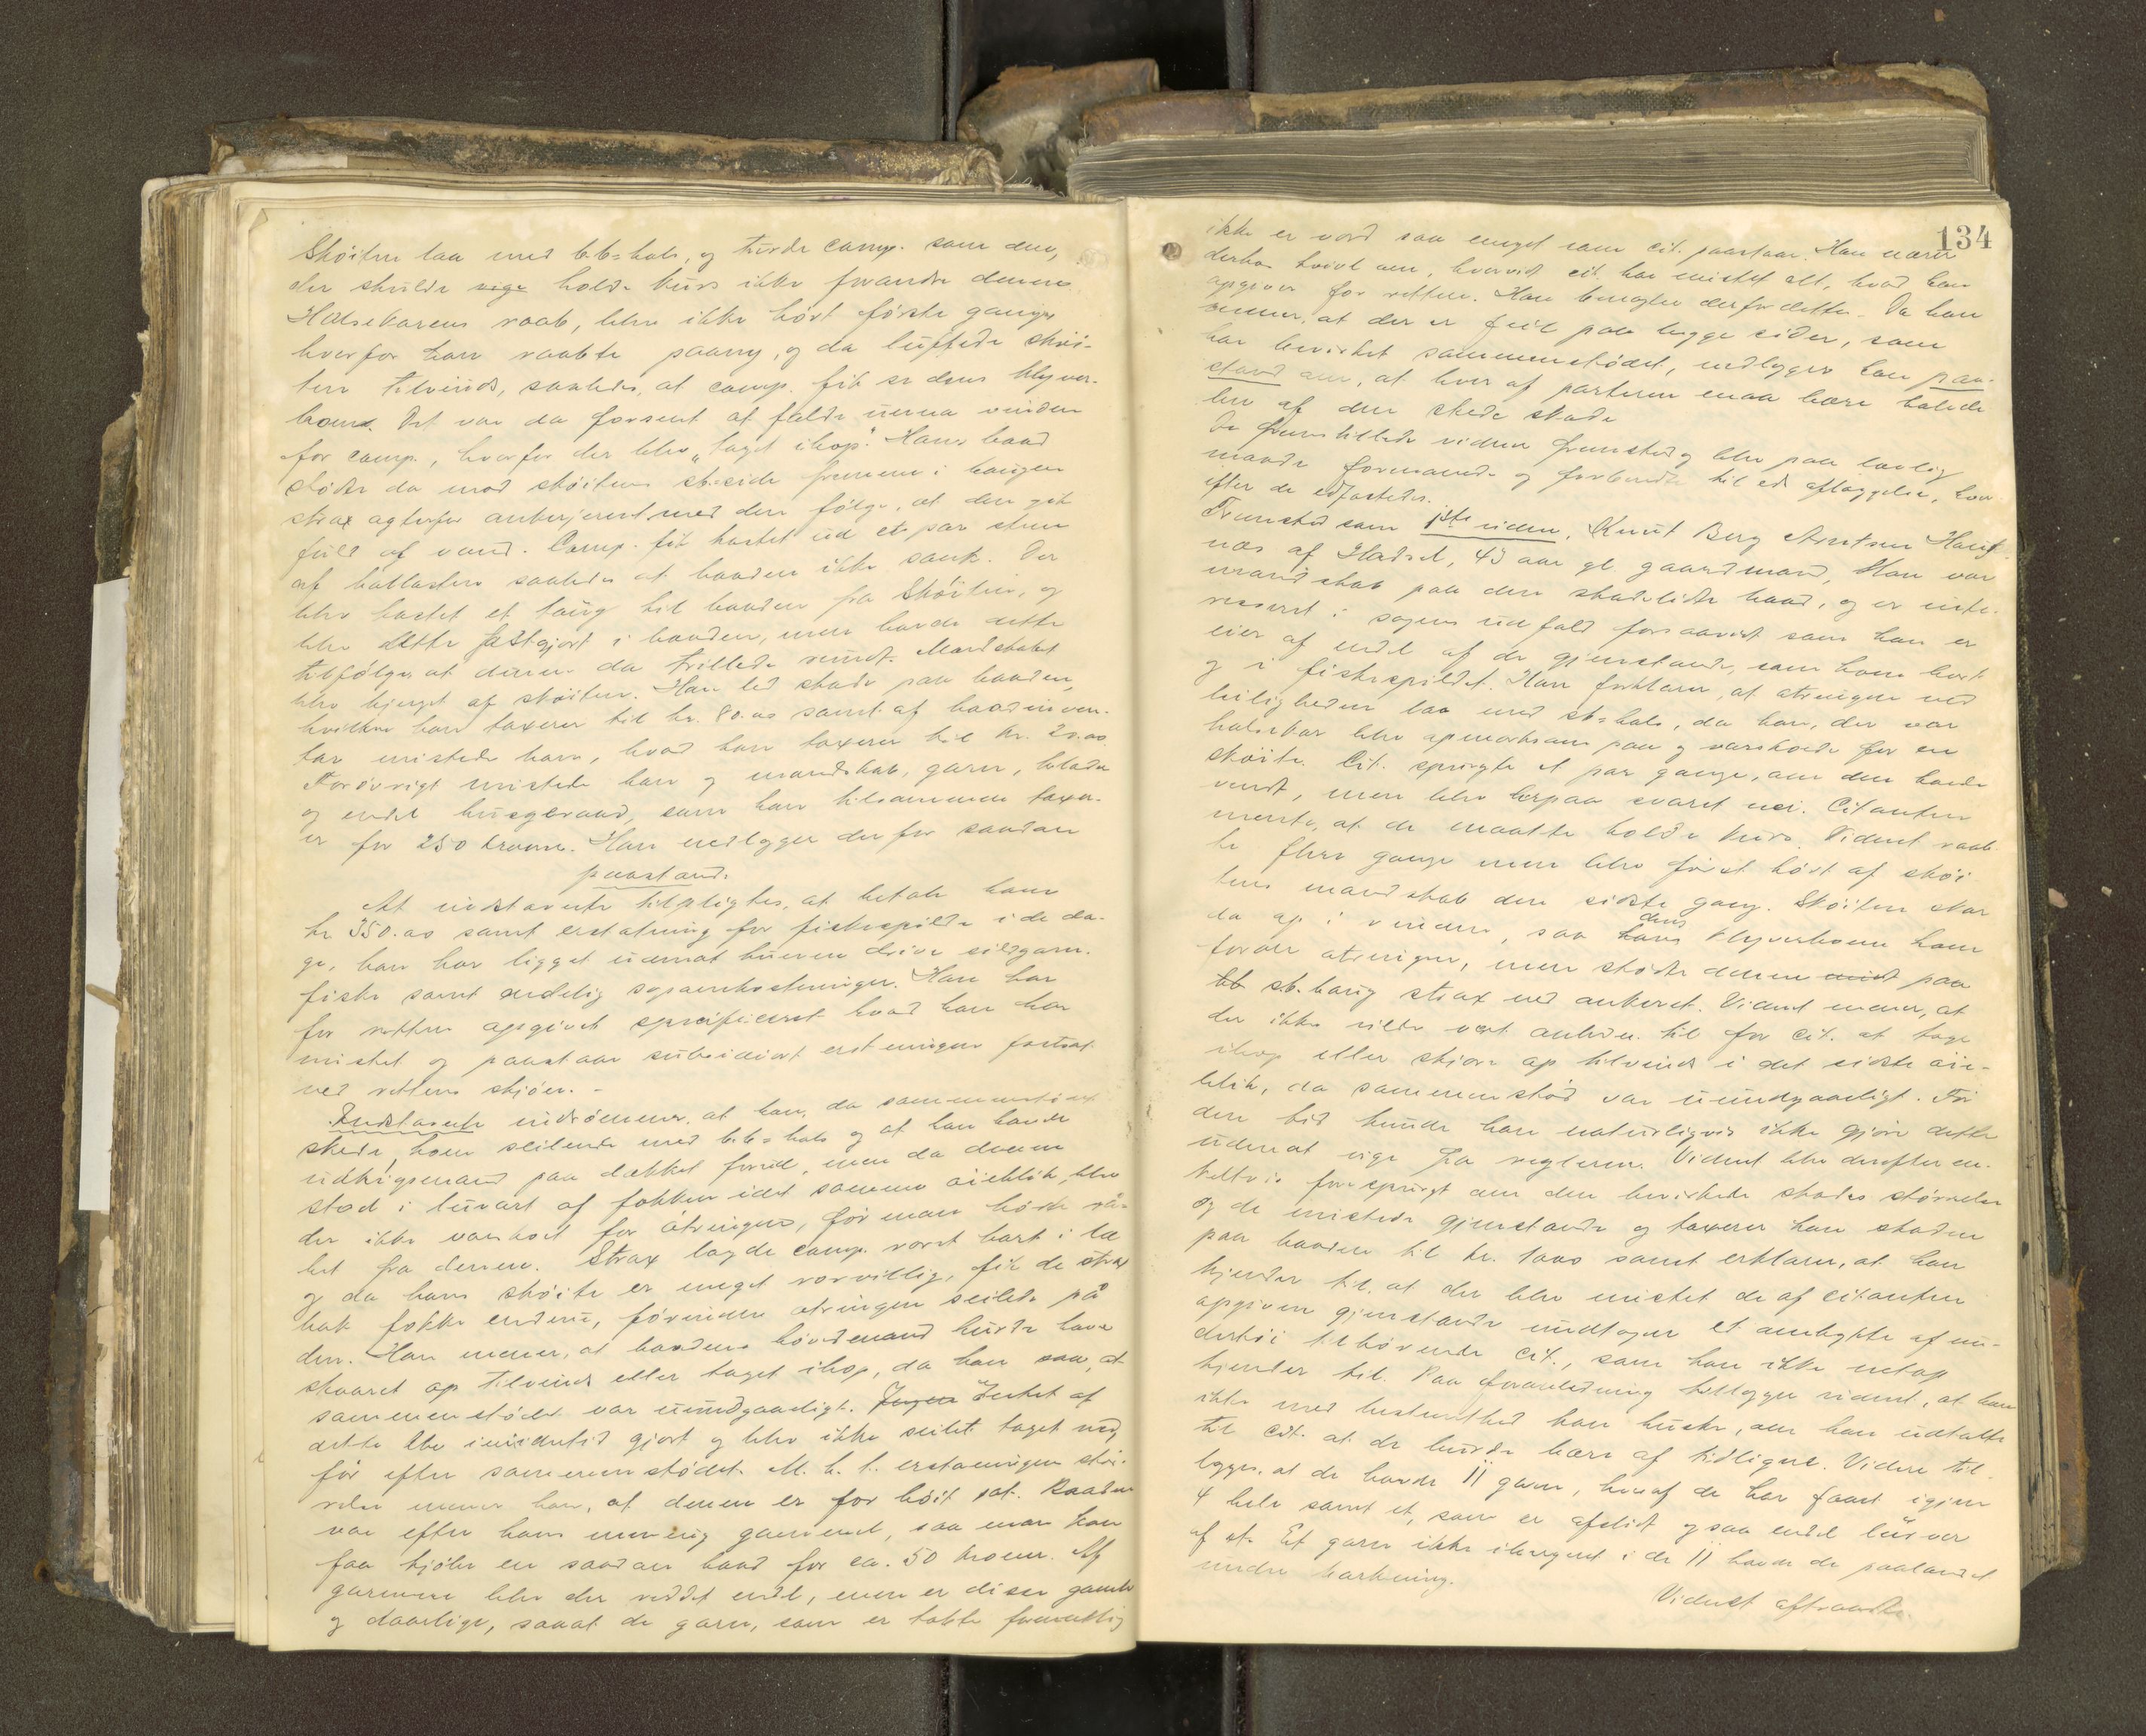 Skøiten laa med b.b=hals, og turde comp. som den,
der skulde vege holde kurs ikke forandre denne.
Halsekarens raab, blev ikke hørt første gang,
hvorfor han raabte paany, og da luffede skøi-
ten tilvinds, saaledes, at comp. fik se dens klyver-
bom. Det var da forsent at falde unna vinden
for comp., hvorfor der blev „taget ihop". Hans baad
stødte da mod skøitens sb=side fremme i baugen
strax agtenfor ankerjernet med den følge, at den gik
fuld af vand. Comp. fik kastet ud et par sten
af ballasten saaledes at baaden ikke sank. Der
blev kastet et taug til baaden fra Skøiten, og
blev dette fastgjort i baaden, men havde dette
tilfølge, at denne da trillede rundt. Mandskabet
blev bjerget af skøiten. Han led skade paa baaden,
hvilken han taxerer til kr. 80.00 samt af baadinven-
tar mistede han, hvad han taxerer til kr. 20.00
Forøvrigt mistede han og mandskab, garn, klæder
og endel husgeraad, som han tilsammen taxer-
er for 250 kroner. Han nedlægger derfor saadan
paastand.
At indstævnte tilpligtes, at betale ham
kr. 350.00 samt erstatning for fiskespilde i de da-
ge, han har ligget udenat kunne drive sildgarn-
fiske samt endelig sagsomkostninger. Han har
for retten opgivet specificeret hvad han har
mistet og paastaar subsidiært erstatningen fastsat
ved rettens skjøn. -
Indstævnte indrømmer, at han, da sammenstødet
skede, kom seilende med b.b=hals og at han havde
udkigsmand paa dækket forud, men da denne
stod i luvart af fokken idet samme øieblik, blev
der ikke varskoet for åtringen, før man hørte rå-
bet fra denne. Strax lagde comp. roret hart i læ
og da hans skøite er meget rorvillig, fik de strax
bak fokke endnu, førinden åtringen seilede på
den. Han mener, at baadens høvedsmand burde have
skaaret op tilvinds eller taget ihop, da han saa, at
sammenstødet var uundgaaeligt. Ingen Intet af
dette blev imidlertid gjort og blev ikke seilet taget ned
før efter sammenstødet. M. h. t. erstatningens stør-
relse mener han, at denne er for høit sat. Baaden
var efter hans mening gammel, saa man kan
faa kjøbt en saadan baad for ca. 50 kroner. Af
garnene blev der reddet endel, men er disse gamle
og daarlige, saaat de garn, som er tabte formentlig
134
ikke er værd saa meget som cit. paastaar. Han nærer
derhos tvivl om, hvorvidt cit. har mistet alt, hvad han
opgiver for retten. Han benægter derfor dette. Da han
mener, at der er feil paa begge sider, som
har bevirket sammenstødet, nedlægger han paa-
stand om, at hver af parterne maa bære halvde-
len af den skede skade.
De fremstillede vidner fremstod og blev paa lovlig
maade formanede og forberedte til eds aflæggelse, hvor-
efter de edfæstedes.
Fremstod som 1ste vidne, Knut Berg Arntsen Haug-
næs af Hadsel, 43 aar gl. gaardmand, Han var
mandskab paa den skadelidte baad, og er inte-
resseret i sagens udfald forsaavidt som han er
eier af endel af de gjenstande, som kom bort
og i fiskespildet. Han forklarer, at åtringen ved
leiligheden laa med sb=hals, da han, der var
halsekar blev opmerksom paa og varskoede for en
skøite. Cit. spurgte et par gange, om den havde
vendt, men blev herpaa svaret nei. Citanten
mente, at de maatte holde kurs. Vidnet raab-
te flere gange men blev først hørt af skøi-
tens mandskab den sidste gang. Skøiten skar
da op i vinden, saa hans dens klyverbom kom
foran åtringen, men stødte denne midt paa
bb sb. baug strax ved ankeret. Vidnet mener, at
der ikke vilde vært anledn. til for cit. at tage
ihop eller skjære op tilvinds i det sidste øie-
blik, da sammenstød var uundgaaeligt. Før
den tid kunde han naturligvis ikke gjøre dette
udenat vige fra reglerne. Vidnet blev derefter en-
keltvis forespurgt om den bevirkede skades størrelse
og de mistede gjenstande og taxerer han skaden
paa baaden til kr. 100,00 samt erklærer, at han
kjender til, at der blev mistet de af citanten
opgivne gjenstande undtagen et ombytte af un-
dertøi tilhørende cit., som han ikke netop
kjender til. Paa foranledning tillægger vidnet, at han
ikke med bestemthed kan huske, om han udtalte
til cit. at de burde bære af tidligere. Videre til-
lægges, at de havde 11 garn, hvoraf de har faaet igjen
4 hele samt et, som er afslidt og saa endel tüsver
af et. Et garn ikke iberegnet i de 11 havde de paalandet
under barkning.
Vidnet aftraadte.